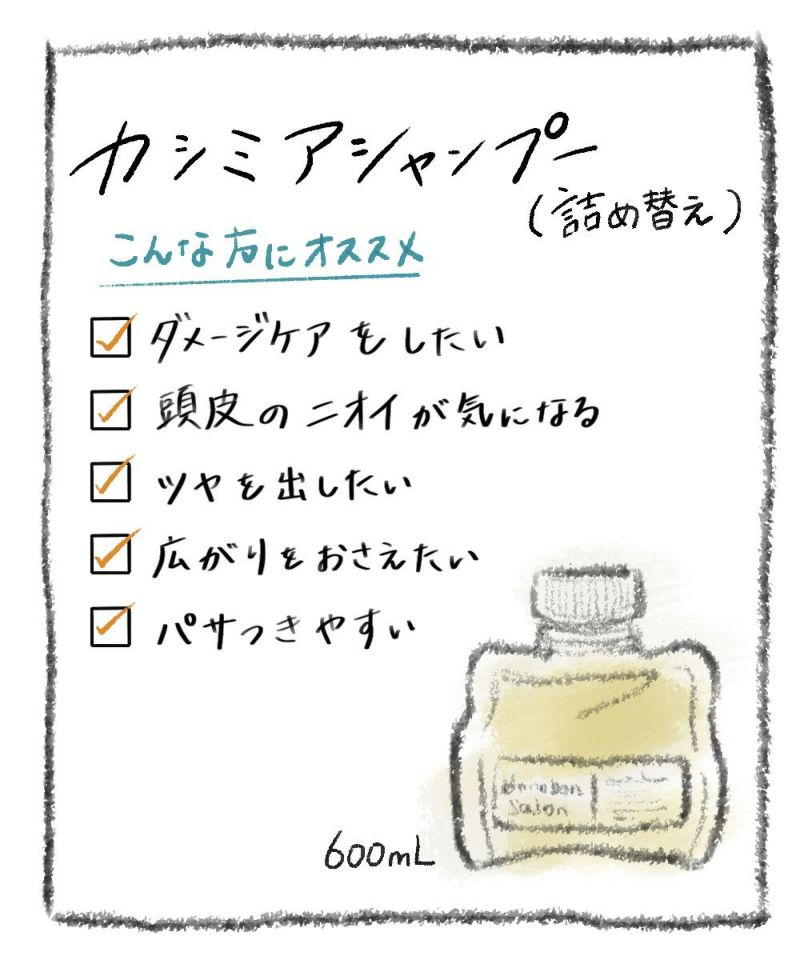 カシミアシャンプー
(詰め替え)
こんな方にオススメ
ダメージケアをしたい
頭皮のニオイが気になる
ツヤを出したい
広がりをおさえたい
パサつきやすい
Salon
600mL